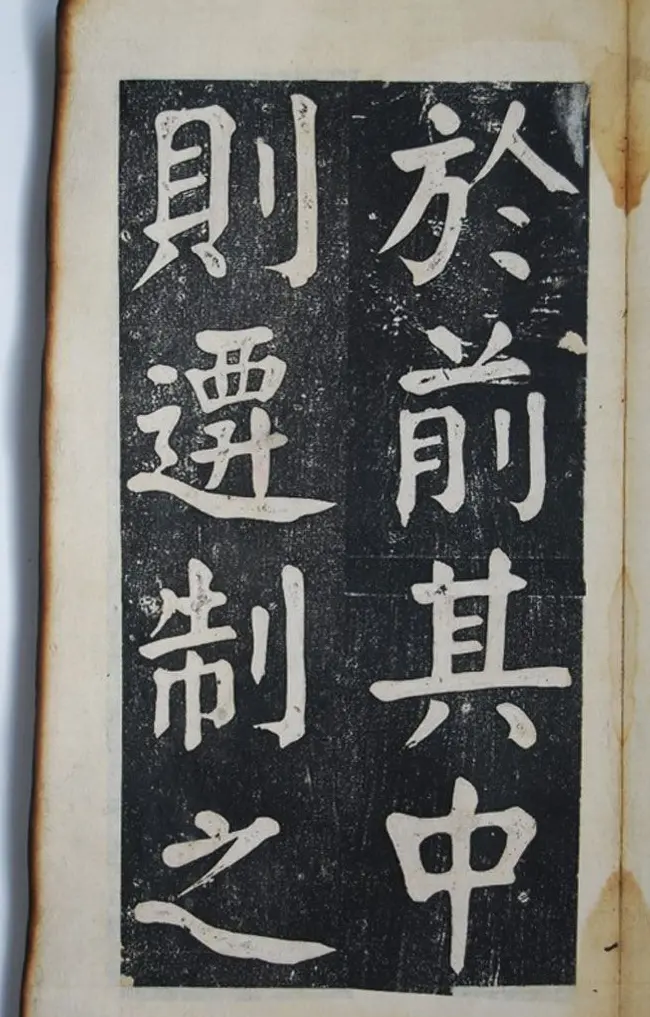 於前其中
則遷制之